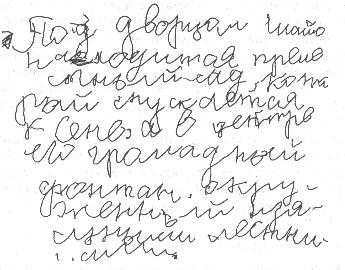 Под дворцом Шайо
находится преле
стный сад, кото
рый спускается
к Сене, а в центре
его громадный
фонтан, окру-
женный изя-
щными лестни-
цами.